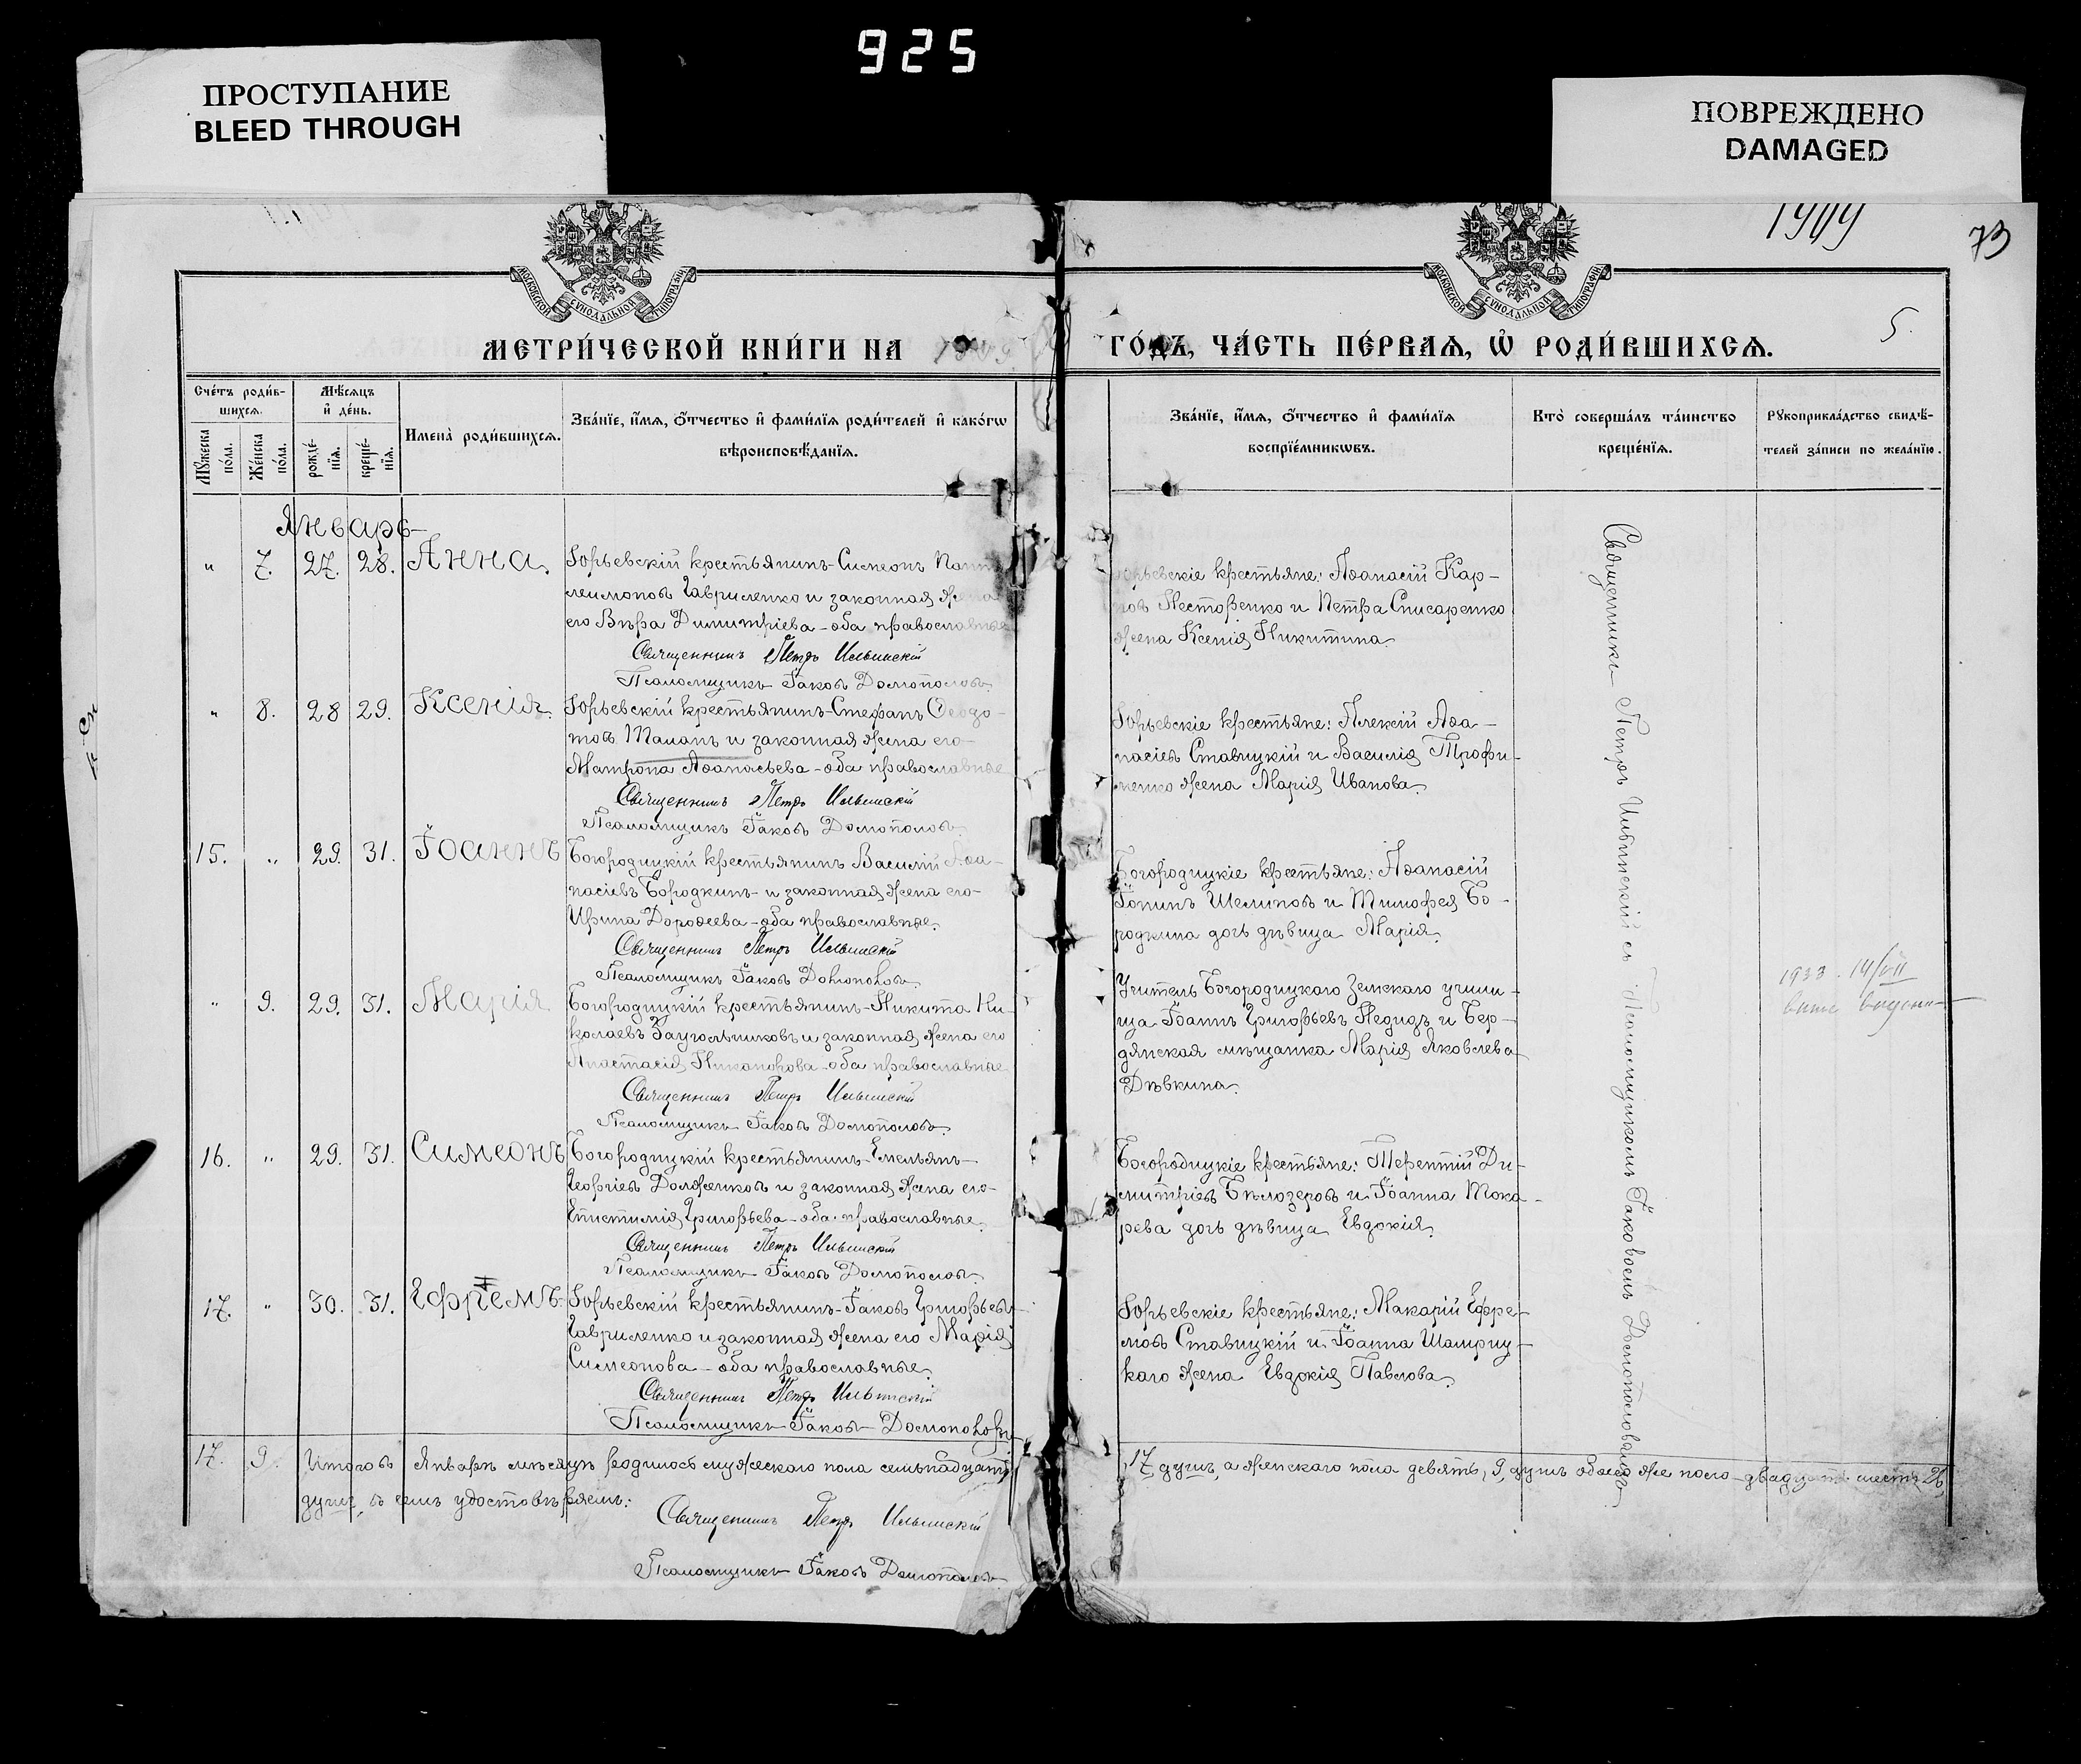 925
ПРОСТУПАНИЕ
BLEED THROUGH
ПОВРЕЖДЕНО
DAMAGED
73
5.
МОСКОВСКОЙ СѴНОДАЛЬНОЙ ТИПОГРАФІИ
МОСКОВСКОЙ СѴНОДАЛЬНОЙ ТИПОГРАФІИ
МЕТРИ́ЧЕСКОЙ КНИ́ГИ НА
ГО́ДЪ, ЧА́СТЬ ПЕ́РВАѦ, Ѡ҆ РОДИ́ВШИХСѦ.
Сче́тъ роди́в-
шихсѧ.
Мѣ́сѧцъ
и҆ де́нь.
Мꙋ́жеска
по́ла.
Же́нска
по́ла.
рожде́-
нїѧ.
креще́-
нїѧ.
Имена̀ роди́вшихсѧ.
Зва́нїе, и҆́мѧ, ѻ҆́тчество и҆ фами́лїѧ роди́телей и҆ како́гѡ
вѣроисповѣ́данїѧ.
Зва́нїе, и҆́мѧ, ѻ҆́тчество и҆ фами́лїѧ
воспрїе́мникѡвъ.
Кто̀ соверша́лъ та́инство
креще́нїѧ.
Рꙋкоприкла́дство свидѣ́-
телей за́писи по жела́нїю.
Январь
" 7. 27. 28. Анна.
Юрьевскій крестьянинъ Симеонъ
Гавриленко и законная жена
его Вѣра Димитріева - оба православные
Священникъ Петръ Ильинскій
Псаломщикъ Іаковъ Домополовъ.
Юрьевскіе крестьяне: Аѳанасій Кар-
повъ Несторенко и Петра Снисаренко
жена Ксенія Никитина.
" 8. 28 29. Ксенія.
Юрьевскій крестьянинъ Стефанъ Ѳеодо-
товъ и законная жена его
Матрона Аѳанасьева - оба православные
Священникъ Петръ Ильинскій
Псаломщикъ Іаковъ Домополовъ.
Юрьевскіе крестьяне: Алексій Аѳа-
насіевъ Ставицкій и Василія Трофи-
менко жена Марія Иванова.
15. " 29. 31. Іоаннъ
Богородицкій крестьянинъ Василій Аѳа-
насіевъ Бородкинъ и законная жена его
Ирина Дороѳеева - оба православные.
Священникъ Петръ Ильинскій
Псаломщикъ Іаковъ Домополовъ.
Богородицкіе крестьяне: Аѳанасій
Шелиповъ и Тимофея Бо-
родкина дочь дѣвица Марія.
" 9. 29. 31. Марія
Богородицкій крестьянинъ Никита Ни-
колаевъ Заугольниковъ и законная жена его
Анастасія Никанорова - оба православные
Священникъ Петръ Ильинскій
Псаломщикъ Іаковъ Домополовъ.
Учитель Богородицкаго Земскаго учили-
ща Іоаннъ Григорьевъ и Бер-
дянская мѣщанка Марія Яковлева
Дѣвкина.
1933. 14/VII
16. " 29. 31. Симеонъ
Богородицкій крестьянинъ Емельянъ
Георгіевъ Долженковъ и законная жена его
Епистимія Григорьева - оба православные.
Священникъ Петръ Ильинскій
Псаломщикъ Іаковъ Домополовъ.
Богородицкіе крестьяне: Терентій Ди-
митріевъ Бѣлозеровъ и Іоанна Тока-
рева дочь дѣвица Евдокія.
17. " 30. 31. Ефремъ.
Юрьевскій крестьянинъ Іаковъ Григорьевъ
Гавриленко и законная жена его Марія
Симеонова - оба православные.
Священникъ Петръ Ильинскій
Псаломщикъ Іаковъ Домополовъ
Юрьевскіе крестьяне: Макарій Ефре-
мовъ Ставицкій и Іоанна
каго жена Евдокія Павлова.
Священникъ Петръ Ильинскій съ Псаломщикомъ Іаковомъ Домополовымъ
17. 9. Итого въ Январѣ мѣсяцѣ родилось мужескаго пола семьнадцать
17 душъ, а женскаго пола девять, 9, душъ обоего же пола двадцать шесть 26,
душъ, въ семъ удостовѣряемъ:
Священникъ Петръ Ильинскій
Псаломщикъ Іаковъ Домополовъ